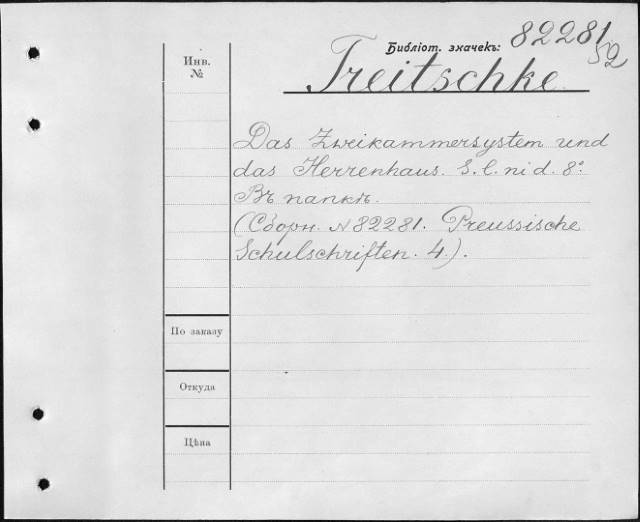 Библіот. значекъ: 82281
52
Инв.
№
Treitschke.
Das Zweikammersystem und
das Herrenhaus. S. l. ni d. 8°.
Въ папкѣ.
(Сборн. № 82281. Preussische
Schulschriften. 4.).
По заказу
Откуда
Цѣна